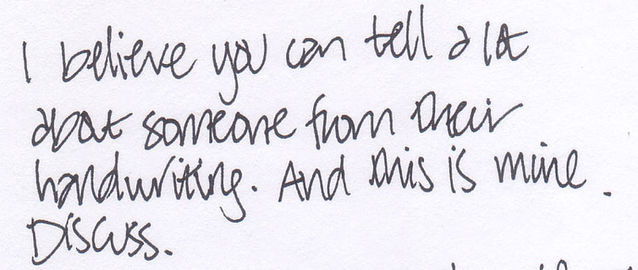 I believe you can tell a lot
about someone from their
handwriting. And this is mine.
Discuss.